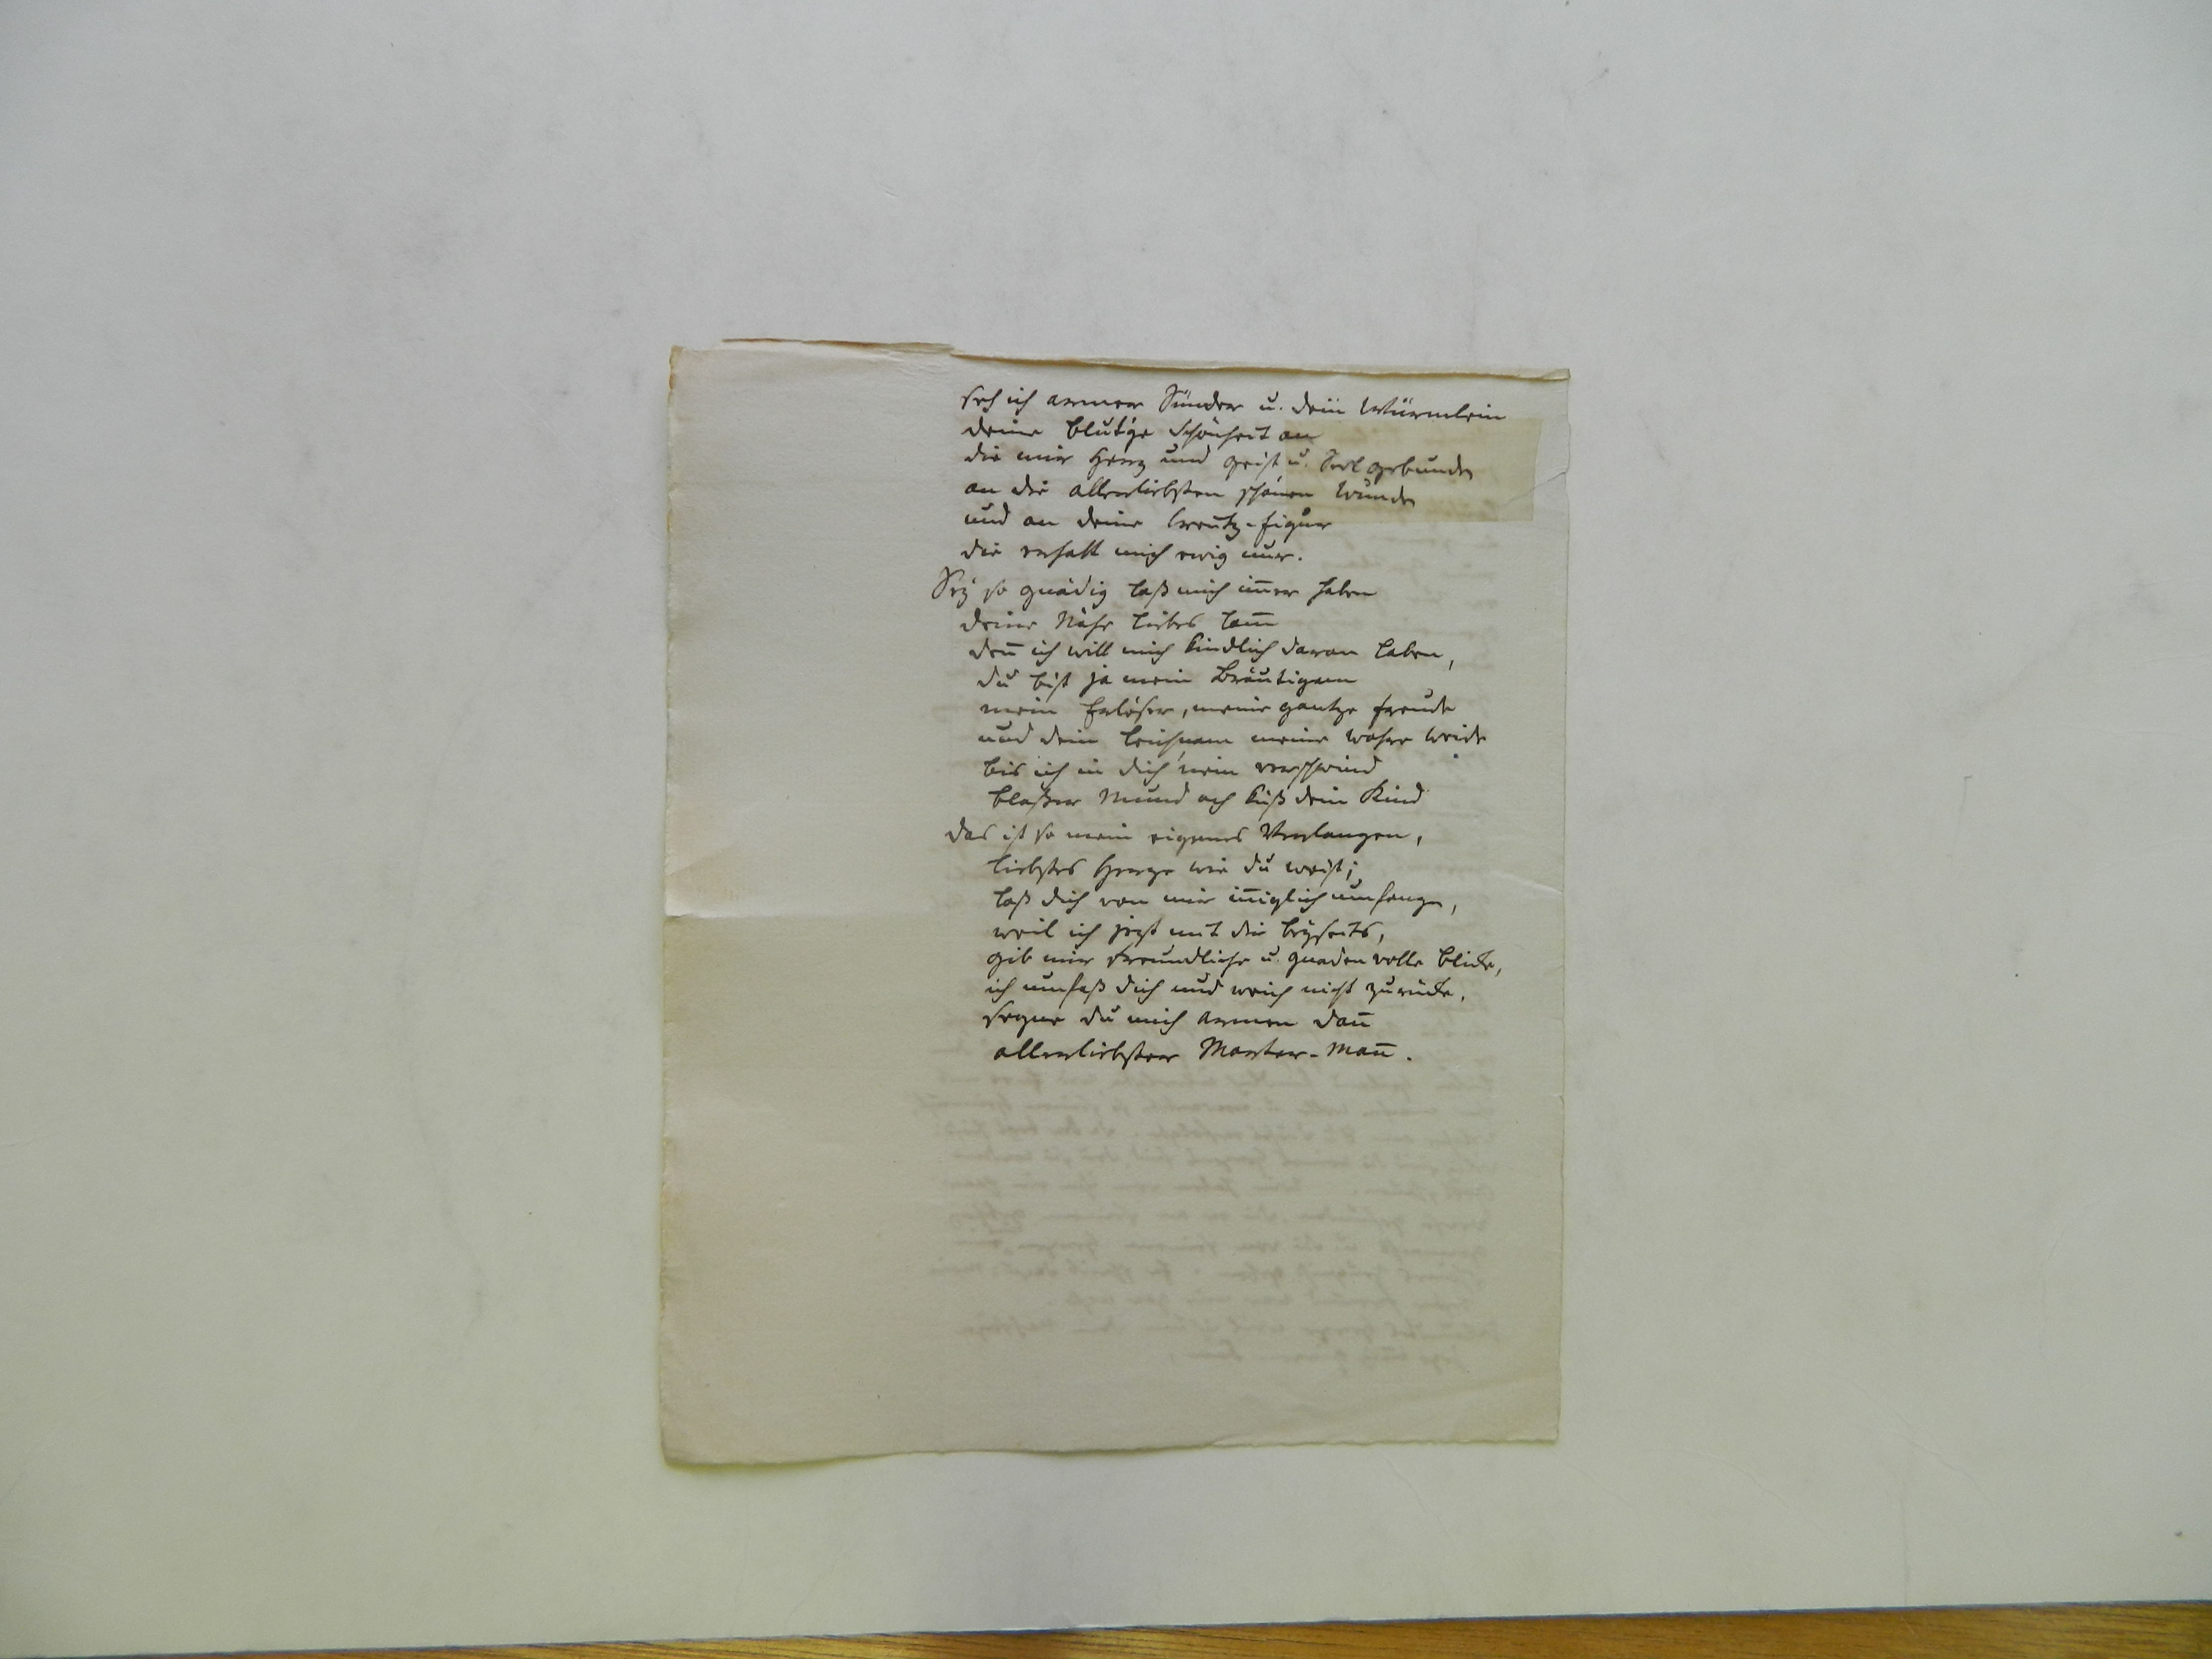 seh ich armer Sünder u. dein Würmlein
deine blut'ge Schönheit an
die mir Herz und geist u. Seel gebunden
an die allerliebsten schönen Wunden
und an deine Creutz-figur
die erhalt mich ewig nur.
Sey so gnädig laß mich im̄er haben
deine Nähe liebes Lam̄
den̄ ich will mich kindlich daran laben,
du bist ja mein Bräutigam
mein Erlöser, meine gantze freude
und dein Leichnam meine wahre Weide
bis ich in dich 'nein verschwind
blaßer Mund ach küß dein Kind
das ist so mein eigenes Verlangen,
liebstes Herze wie du weist;
laß dich von mir in̄iglich umfangen,
weil ich jezt mit dir
gib mir freundliche u. gnaden volle blicke,
ich umfaß dich und weich nicht zurücke.
segne du mich armen dan̄
allerliebster Marter-Man̄.